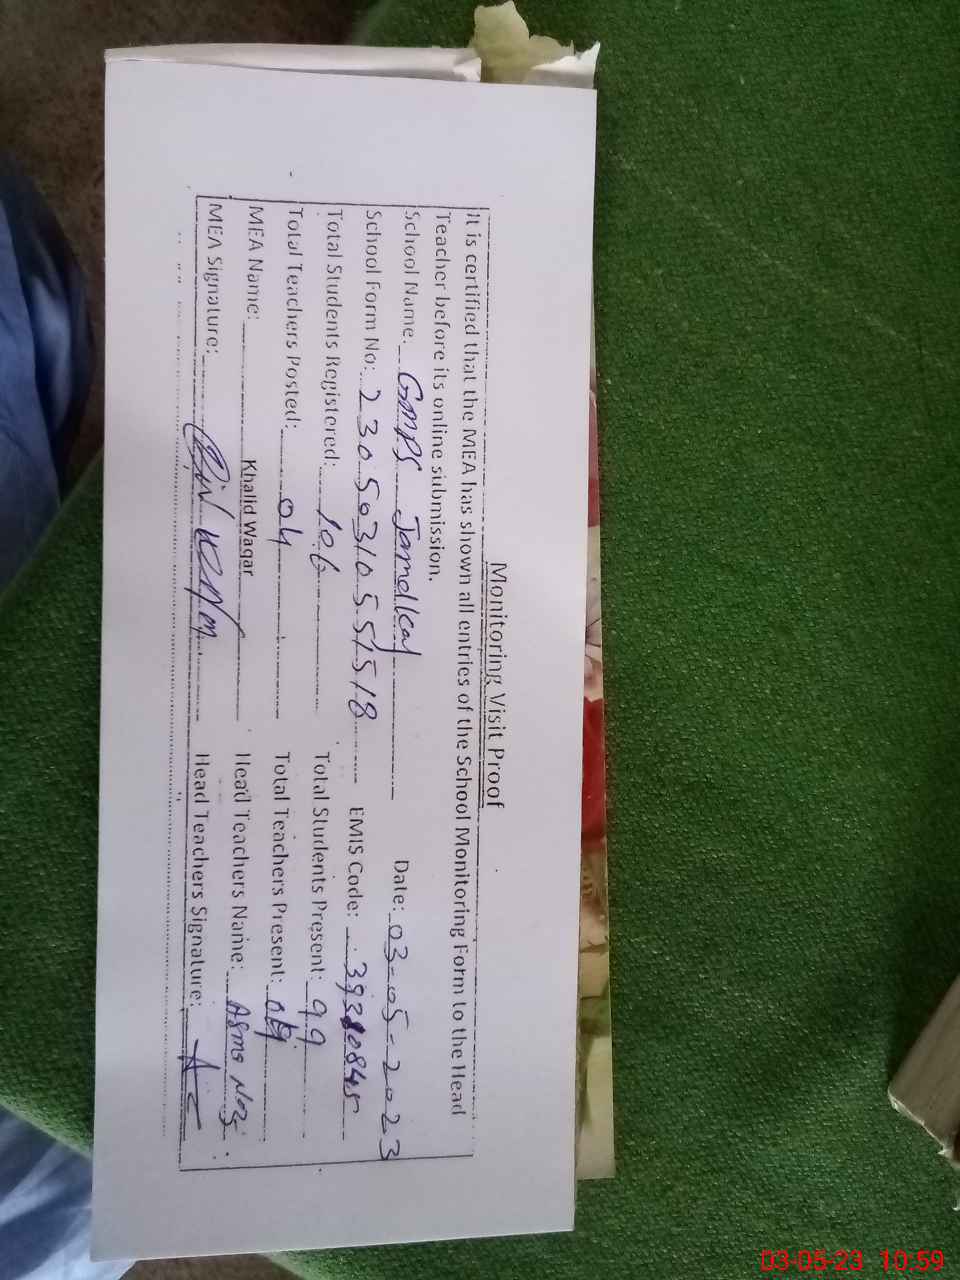 Monitoring Visit Proof
It is certified that the MEA has shown all entries of the School Monitoring Form to the Head
Teacher before its online submission.
School Name: GMPS Date: 03-05-2023
School Form No: 23050310551518 EMIS Code: 39310845
Total Students Registered: 106 Total Students Present: 99
Total Teachers Posted: 04 Total Teachers Present: 04
MEA Name: Khalid Waqar Head Teachers Name: Asma
MEA Signature: Head Teachers Signature:
03-05-23 10:59